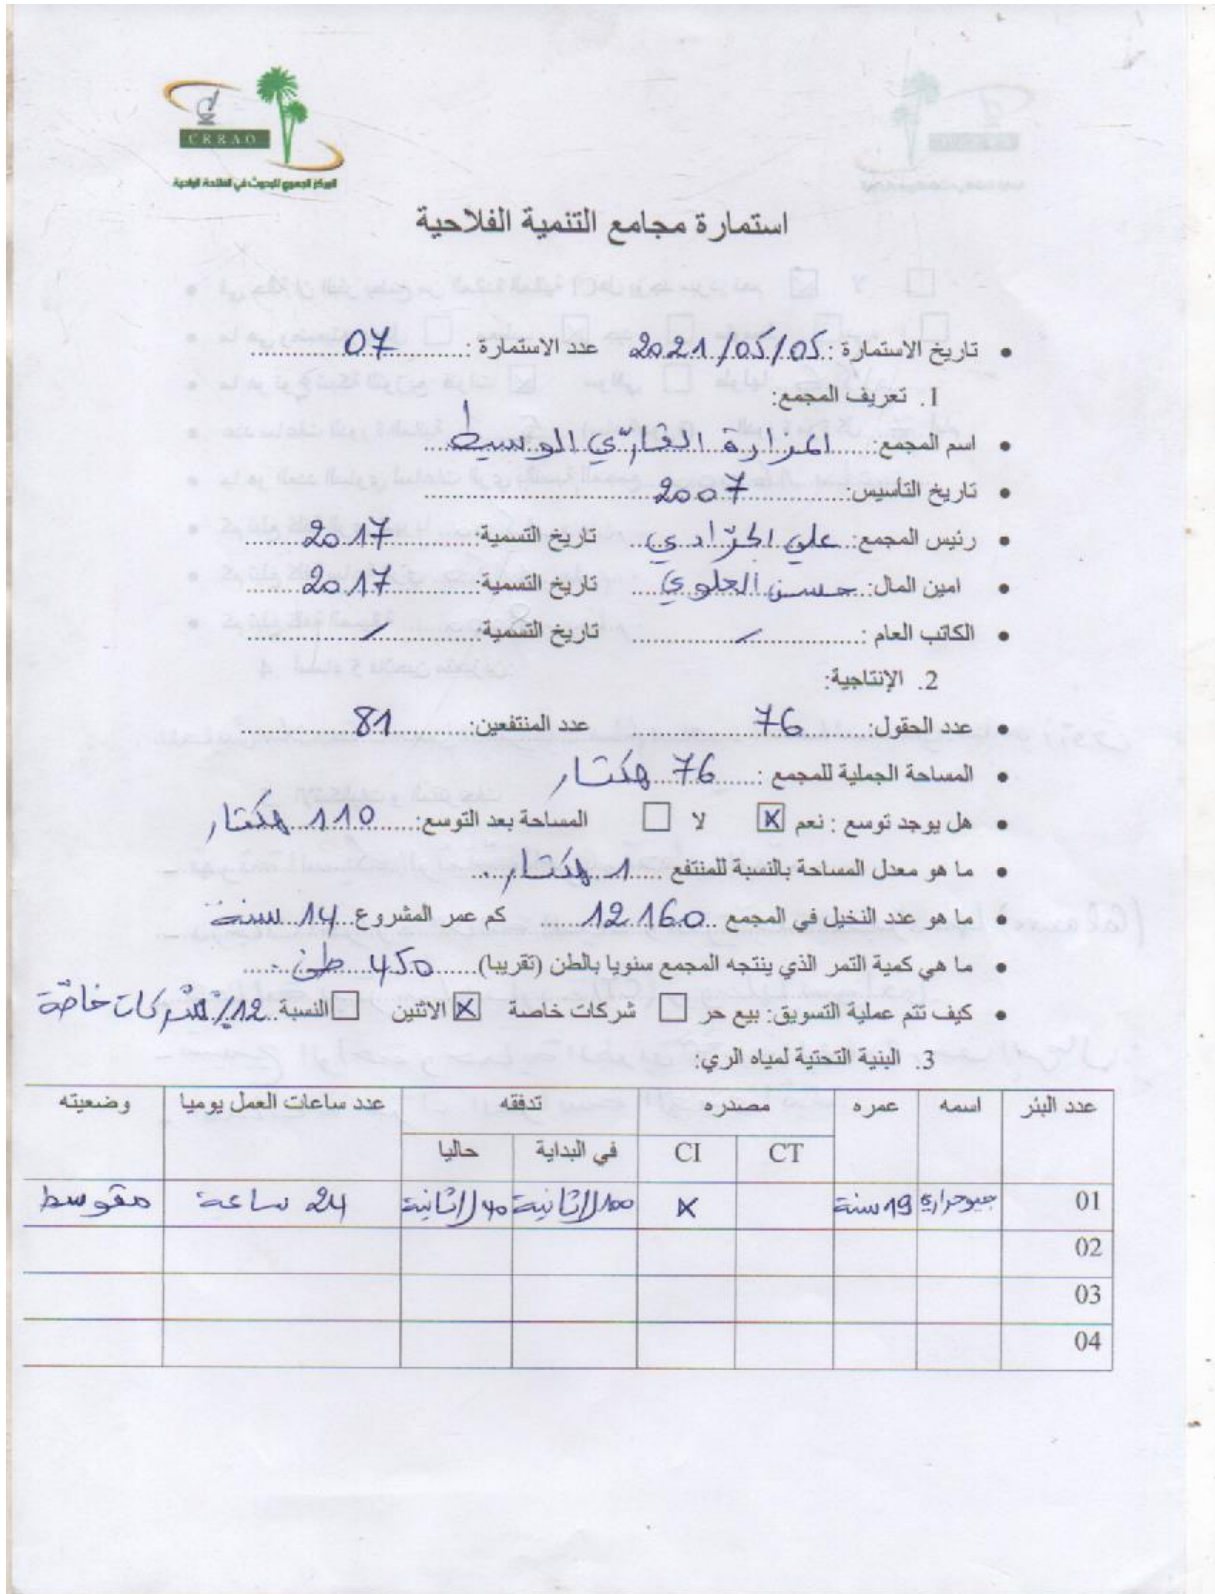 CRRAO
المركز الجهوي للبحوث في الفلاحة الواحية
استمارة مجامع التنمية الفلاحية
• تاريخ الاستمارة : 2021/05/05 عدد الاستمارة : 07
1. تعريف المجمع:
• اسم المجمع: المزارة القارّي الوسيط
• تاريخ التأسيس: 2007
• رئيس المجمع: علي الجرّادي تاريخ التسمية: 2017
• امين المال: حسن العلوي تاريخ التسمية: 2017
• الكاتب العام : / تاريخ التسمية: /
2. الإنتاجية:
• عدد الحقول: 76 عدد المنتفعين: 81
• المساحة الجملية للمجمع : 76 هكتار
• هل يوجد توسع : نعم X لا المساحة بعد التوسع: 110 هكتار
• ما هو معدل المساحة بالنسبة للمنتفع 1 هكتار
• ما هو عدد النخيل في المجمع 12160 كم عمر المشروع 14 سنة
• ما هي كمية التمر الذي ينتجه المجمع سنويا بالطن (تقريبا) 450 طن
• كيف تتم عملية التسويق: بيع حر شركات خاصة X الاثنين النسبة 12% للشركات خاصّة
3. البنية التحتية لمياه الري:
عدد البئر اسمه عمره مصدره تدفقه عدد ساعات العمل يوميا وضعيته
CT CI في البداية حاليا
01 جيوحراري 19 سنة X 100ل/الثانية 40ل/الثانية 24 ساعة متوسط
02
03
04